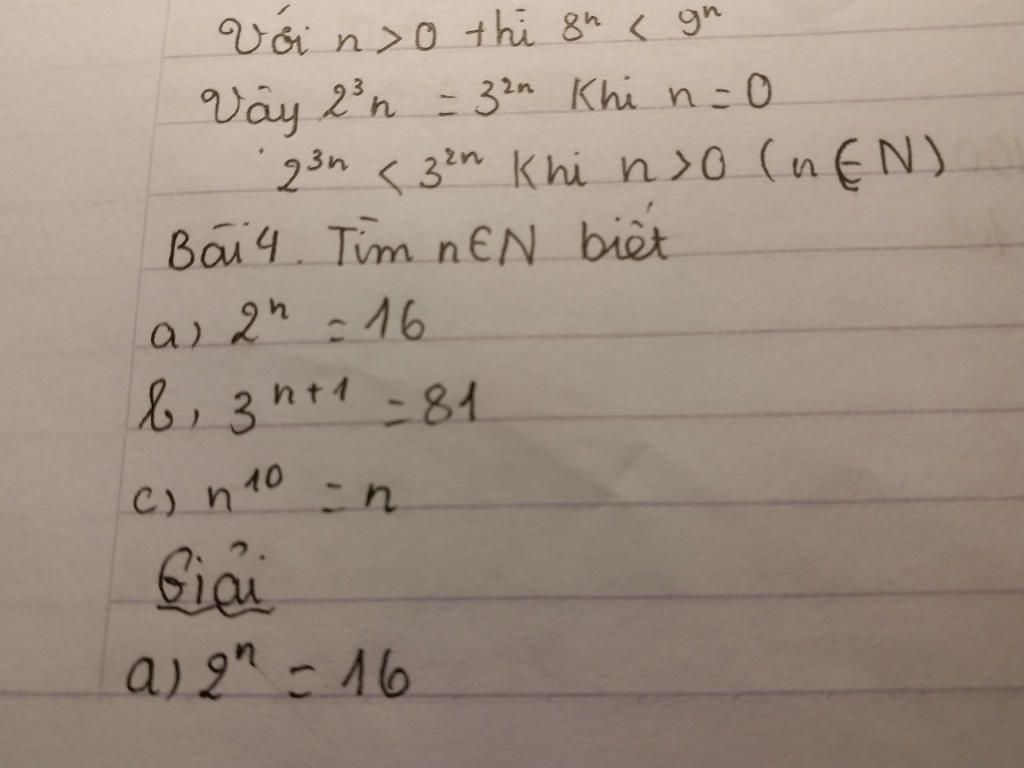 Với n > 0 thì 8ⁿ < 9ⁿ
Vậy 2³n = 3²ⁿ Khi n = 0
2³ⁿ < 3²ⁿ Khi n > 0 (n ∈ N)
Bài 4. Tìm n ∈ N biết
a) 2ⁿ = 16
b, 3ⁿ⁺¹ = 81
c) n¹⁰ = n
Giải
a) 2ⁿ = 16